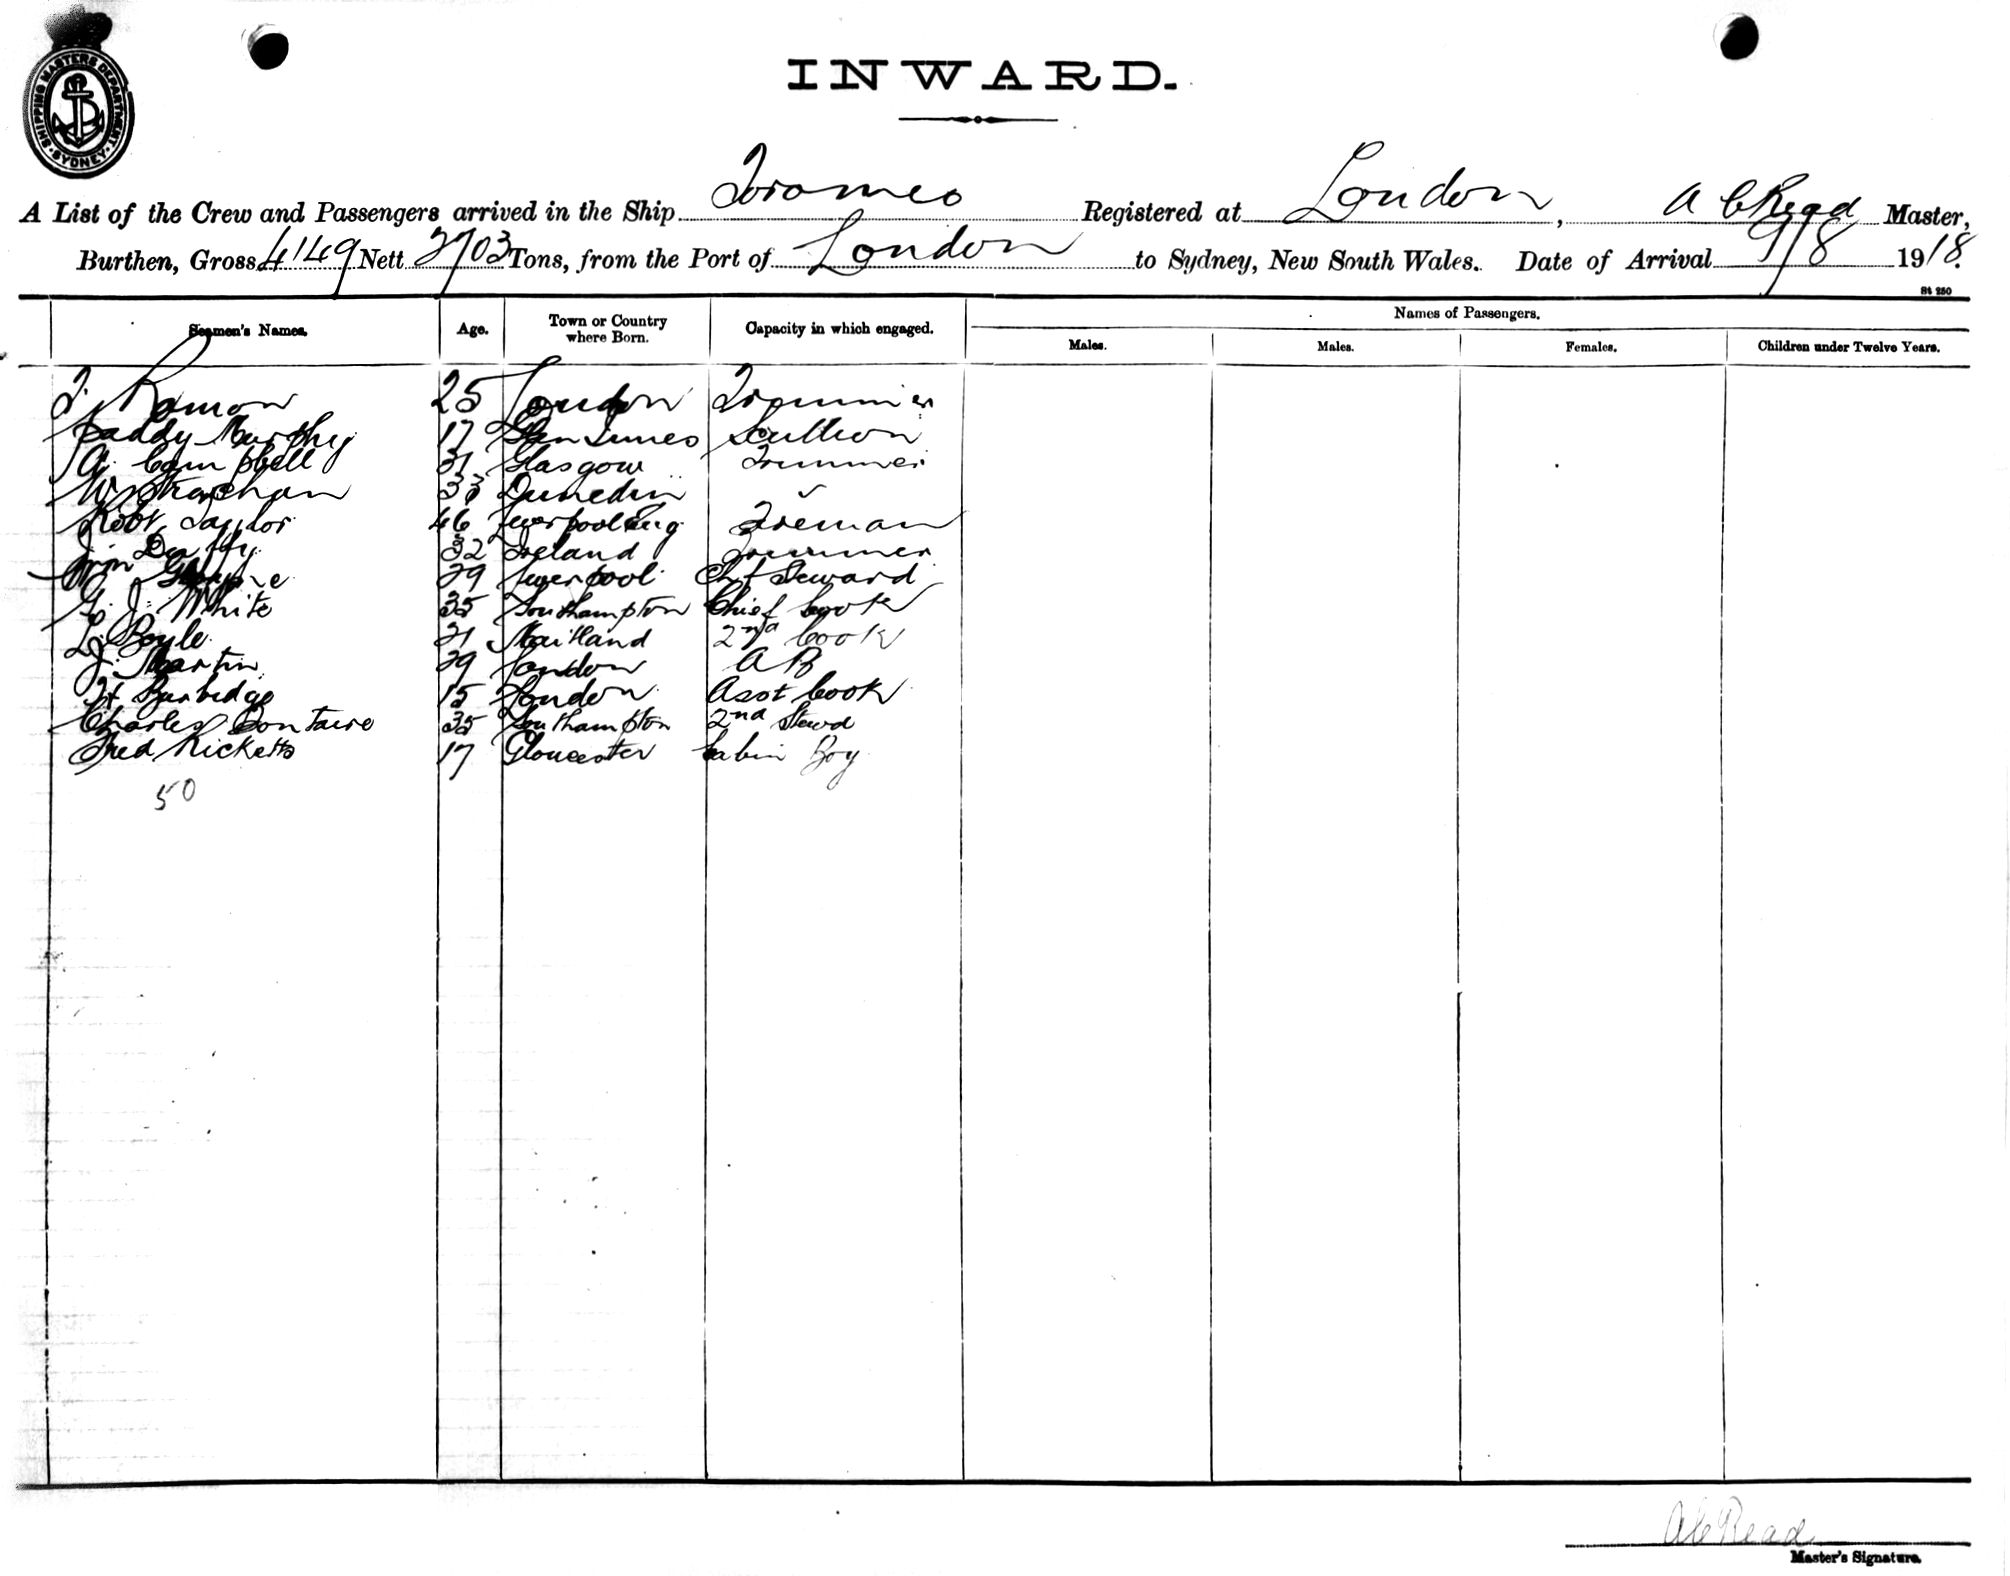 SHIPPING MASTERS DEPARTMENT SYDNEY
INWARD.
A List of the Crew and Passengers arrived in the Ship Toromeo Registered at London, A C Read Master,
Burthen, Gross 4149 Nett 2703 Tons, from the Port of London to Sydney, New South Wales. Date of Arrival 9/8 1918.
St 250
Seamen's Names. Age. Town or Country where Born. Capacity in which engaged. Names of Passengers.
Males. Males. Females. Children under Twelve Years.
25 London Trimmer
Paddy Murphy 17 Glen Innes Scullion
A. Campbell 31 Glasgow Trimmer
W Strachan 33 Dunedin "
Robt Taylor 46 Liverpool Eng Fireman
Jim Duffy 32 Ireland Trimmer
29 Liverpool Chf Steward
G. J. White 35 Southampton Chief Cook
L. Boyle 21 Maitland 2nd Cook
J. Martin 29 London AB
H Burbidge 15 London Asst Cook
Charles Bontaire 35 Southampton 2nd Stewd
Fred Ricketts 17 Gloucester Cabin Boy
50
A C Read
Master's Signature.